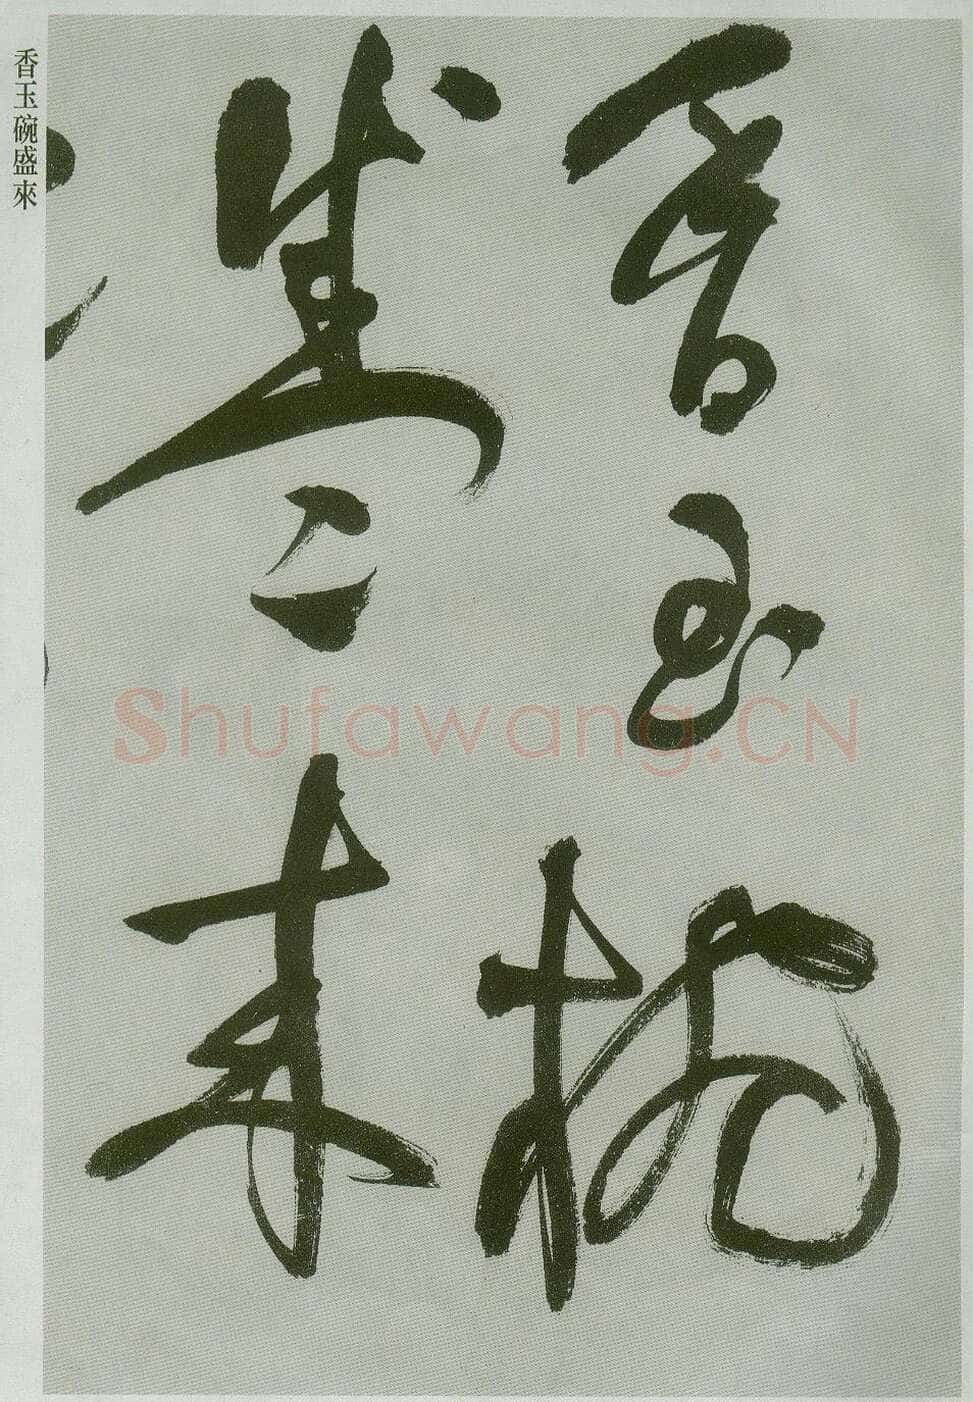 香玉椀
盛来
香玉碗盛來
Shufawang.CN